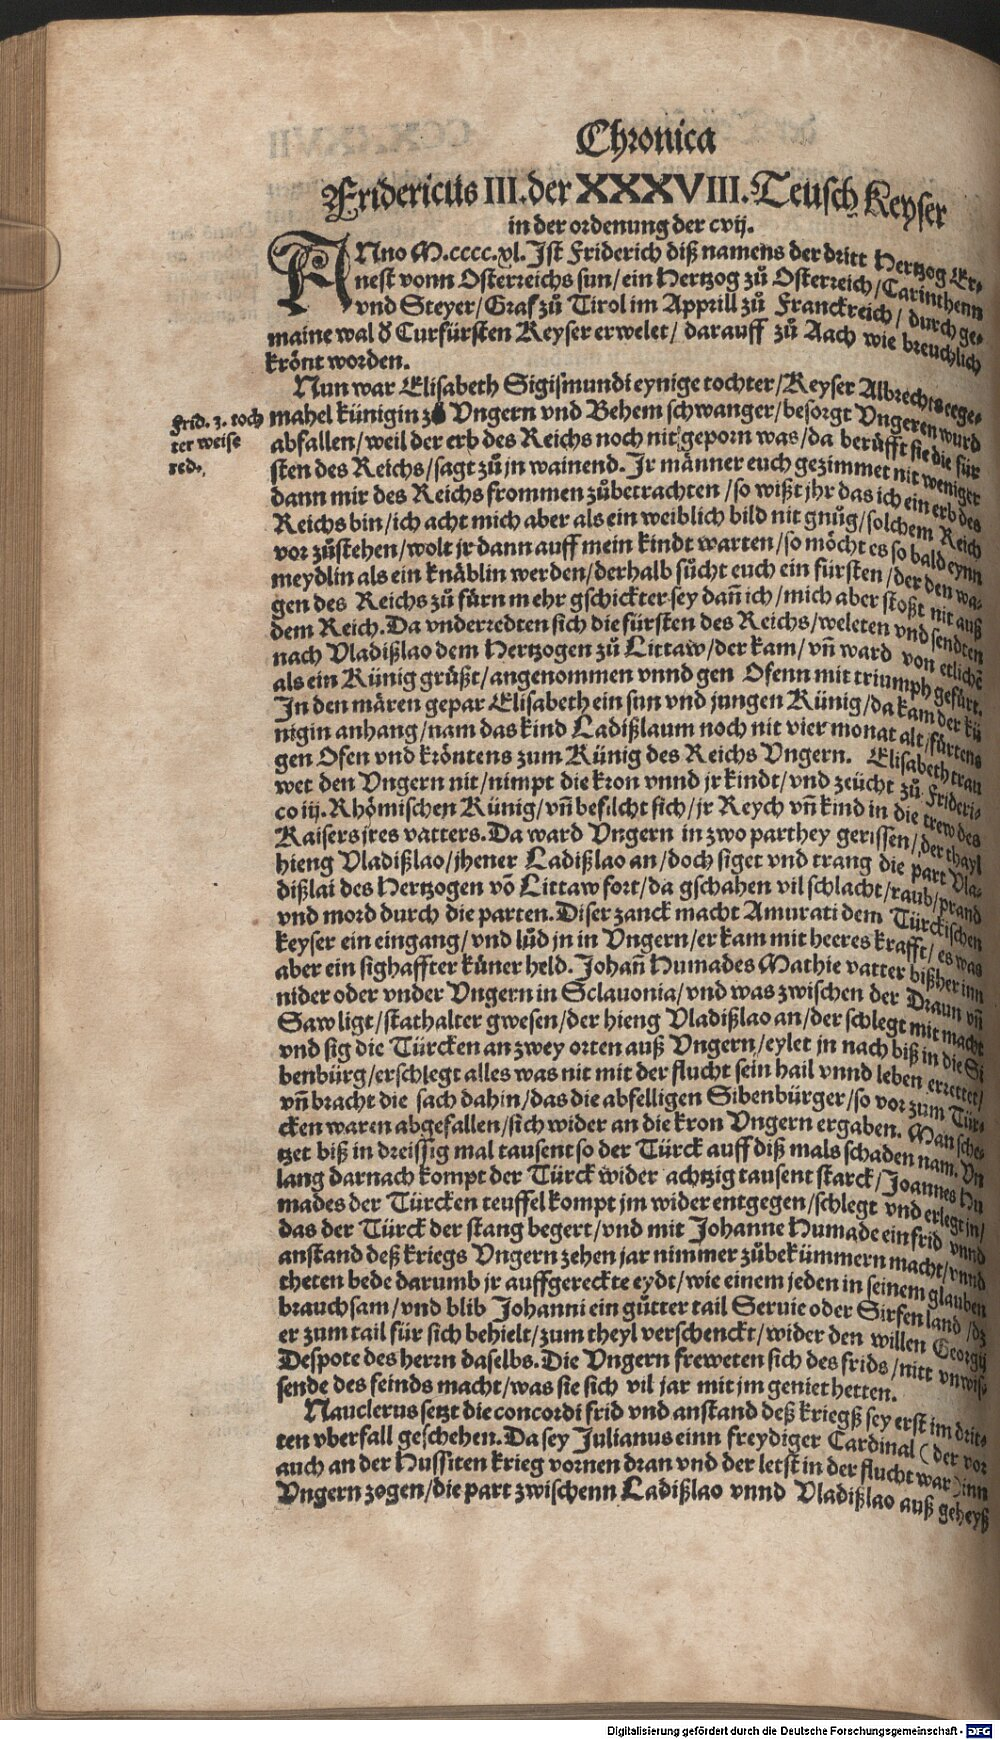 Chronica
Fridericus III. der XXXVIII. Teusch Keyser
in der ordenung der cvij.
ANno M.cccc.xl. Ist Friderich diß namens der dritt Hertzog Er-
nest vonn Osterreichs sun/ein Hertzog zů Osterreich/Carinthenn
vnd Steyer/Graf zů Tirol im Apprill zů Franckreich/durch ge-
maine wal d̕ Curfürsten Keyser erwelet/darauff zů Aach wie breuchlich
krönt worden.
Nun war Elisabeth Sigismundi eynige tochter/Keyser Albrechts eege-
Frid. 3. toch
ter weise
red.
mahel künigin zů Vngern vnd Behem schwanger/besorgt Vngeren wurd
abfallen/weil der erb des Reichs noch nit geporn was/da berůfft sie die für
sten des Reichs/sagt zů jn wainend. Jr männer euch gezimmet nit weniger
dann mir des Reichs frommen zůbetrachten/so wißt jhr das ich ein erb des
Reichs bin/ich acht mich aber als ein weiblich bild nit gnůg/solchem Reich
vor zůstehen/wolt jr dann auff mein kindt warten/so möcht es so bald eynn
meydlin als ein knäblin werden/derhalb sůcht euch ein fürsten/der den wa-
gen des Reichs zů fürn mehr gschickter sey dañ ich/mich aber stoßt nit auß
dem Reich. Da vnderredten sich die fürsten des Reichs/weleten vnd sendten
nach Vladißlao dem Hertzogen zů Littaw/der kam/vñ ward von etlichē
als ein Künig grüßt/angenommen vnnd gen Ofenn mit triumph gefürt.
In den mären gepar Elisabeth ein sun vnd jungen Künig/da kam der kü
nigin anhang/nam das kind Ladißlaum noch nit vier monat alt/fürtens
gen Ofen vnd kröntens zum Künig des Reichs Vngern. Elisabeth traw
wet den Vngern nit/nimpt die kron vnnd jr kindt/vnd zeücht zů Frideri-
co iij. Rhömischen Künig/vñ befilcht sich/jr Reych vñ kind in die trew des
Kaisers jres vatters. Da ward Vngern in zwo parthey gerissen/der thayl
hieng Vladißlao/jhener Ladißlao an/doch siget vnd trang die part Vla-
dißlai des Hertzogen võ Littaw fort/da gschahen vil schlacht/raub/prand
vnd mord durch die parten. Diser zanck macht Amurati dem Türckischen
keyser ein eingang/vnd lůd jn in Vngern/er kam mit heeres krafft/es was
aber ein sighaffter küner held. Johañ Humades Mathie vatter bißher inn
nider oder vnder Vngern in Sclauonia/vnd was zwischen der Draun vñ
Saw ligt/stathalter gwesen/der hieng Vladißlao an/der schlegt mit macht
vnd sig die Türcken an zwey orten auß Vngern/eylet jn nach biß in die Si
benbürg/erschlegt alles was nit mit der flucht sein hail vnnd leben errettet/
vñ bracht die sach dahin/das die abfelligen Sibenbürger/so vor zum Tür-
cken waren abgefallen/sich wider an die kron Vngern ergaben. Man sche-
tzet biß in dreissig mal tausent so der Türck auff diß mals schaden nam. Vn
lang darnach kompt der Türck wider achtzig tausent starck/Joannes Hu
mades der Türcken teuffel kompt jm wider entgegen/schlegt vnd erlegt in/
das der Türck der stang begert/vnd mit Johanne Humade ein frid vnnd
anstand deß kriegs Vngern zehen jar nimmer zůbekümmern macht/vnnd
theten bede darumb jr auffgereckte eydt/wie einem jeden in seinem glauben
brauchsam/vnd blib Johanni ein gůtter tail Seruie oder Sirfenland/dz
er zum tail für sich behielt/zum theyl verschenckt/wider den willen Georgij
Despote des herrn daselbs. Die Vngern freweten sich des frids/nitt vnwis-
sende des feinds macht/was sie sich vil jar mit jm geniet hetten.
Nauclerus setzt die concordi frid vnd anstand deß kriegß sey erst im drit-
ten vberfall geschehen. Da sey Julianus einn freydiger Cardinal (der vor
auch an der Hussiten krieg vornen dran vnd der letst in der flucht war) inn
Vngern zogen/die part zwischenn Ladißlao vnnd Vladißlao auß geheyß
Digitalisierung gefördert durch die Deutsche Forschungsgemeinschaft - DFG